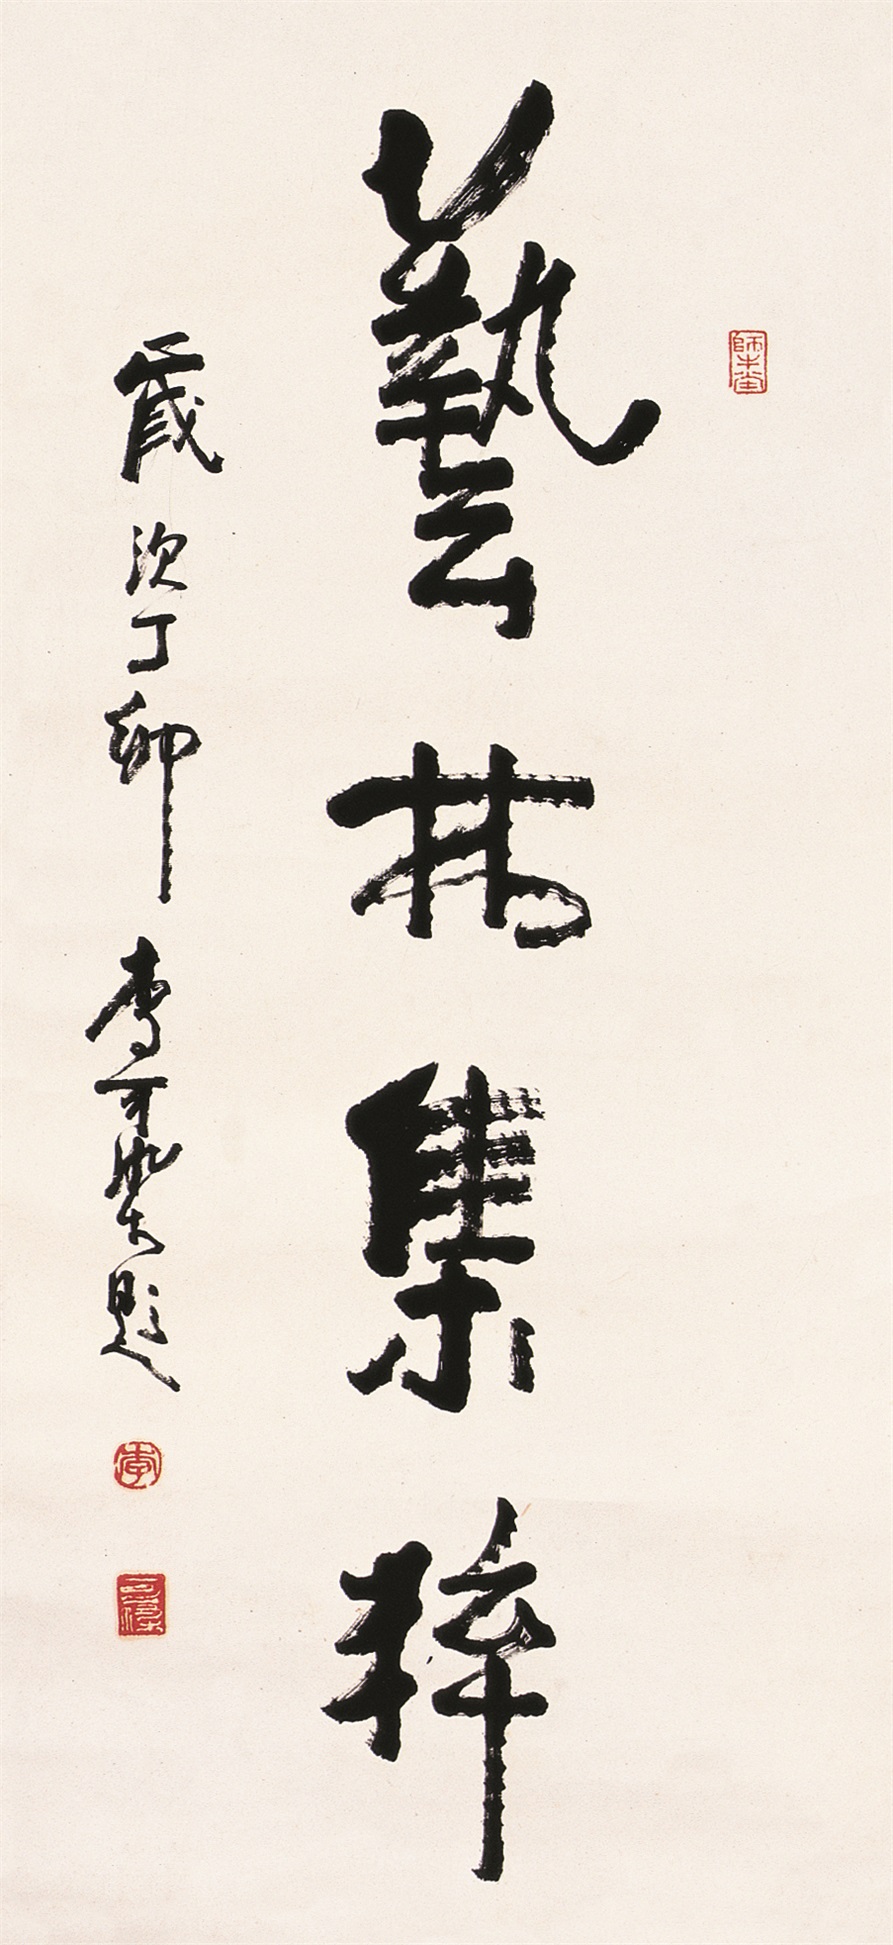 師牛堂
藝林集粹
歲次丁卯 李可染題
李
可染